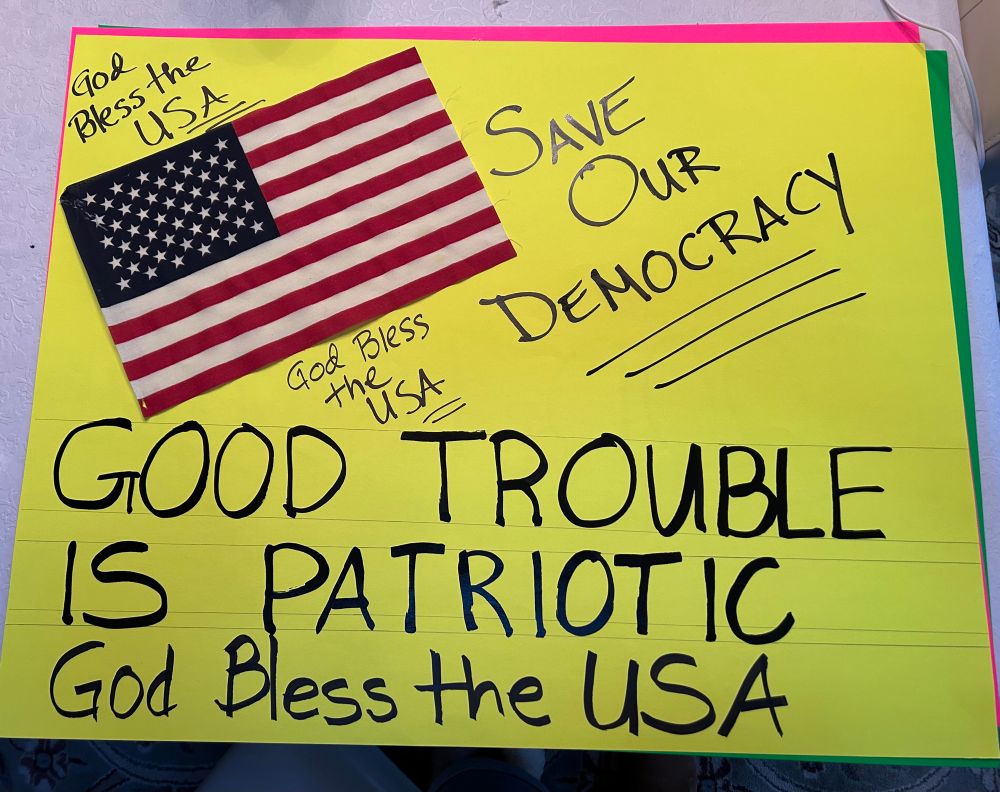 God
Bless the
USA
SAVE
OUR
DEMOCRACY
God Bless
the
USA
GOOD TROUBLE
IS PATRIOTIC
God Bless the USA